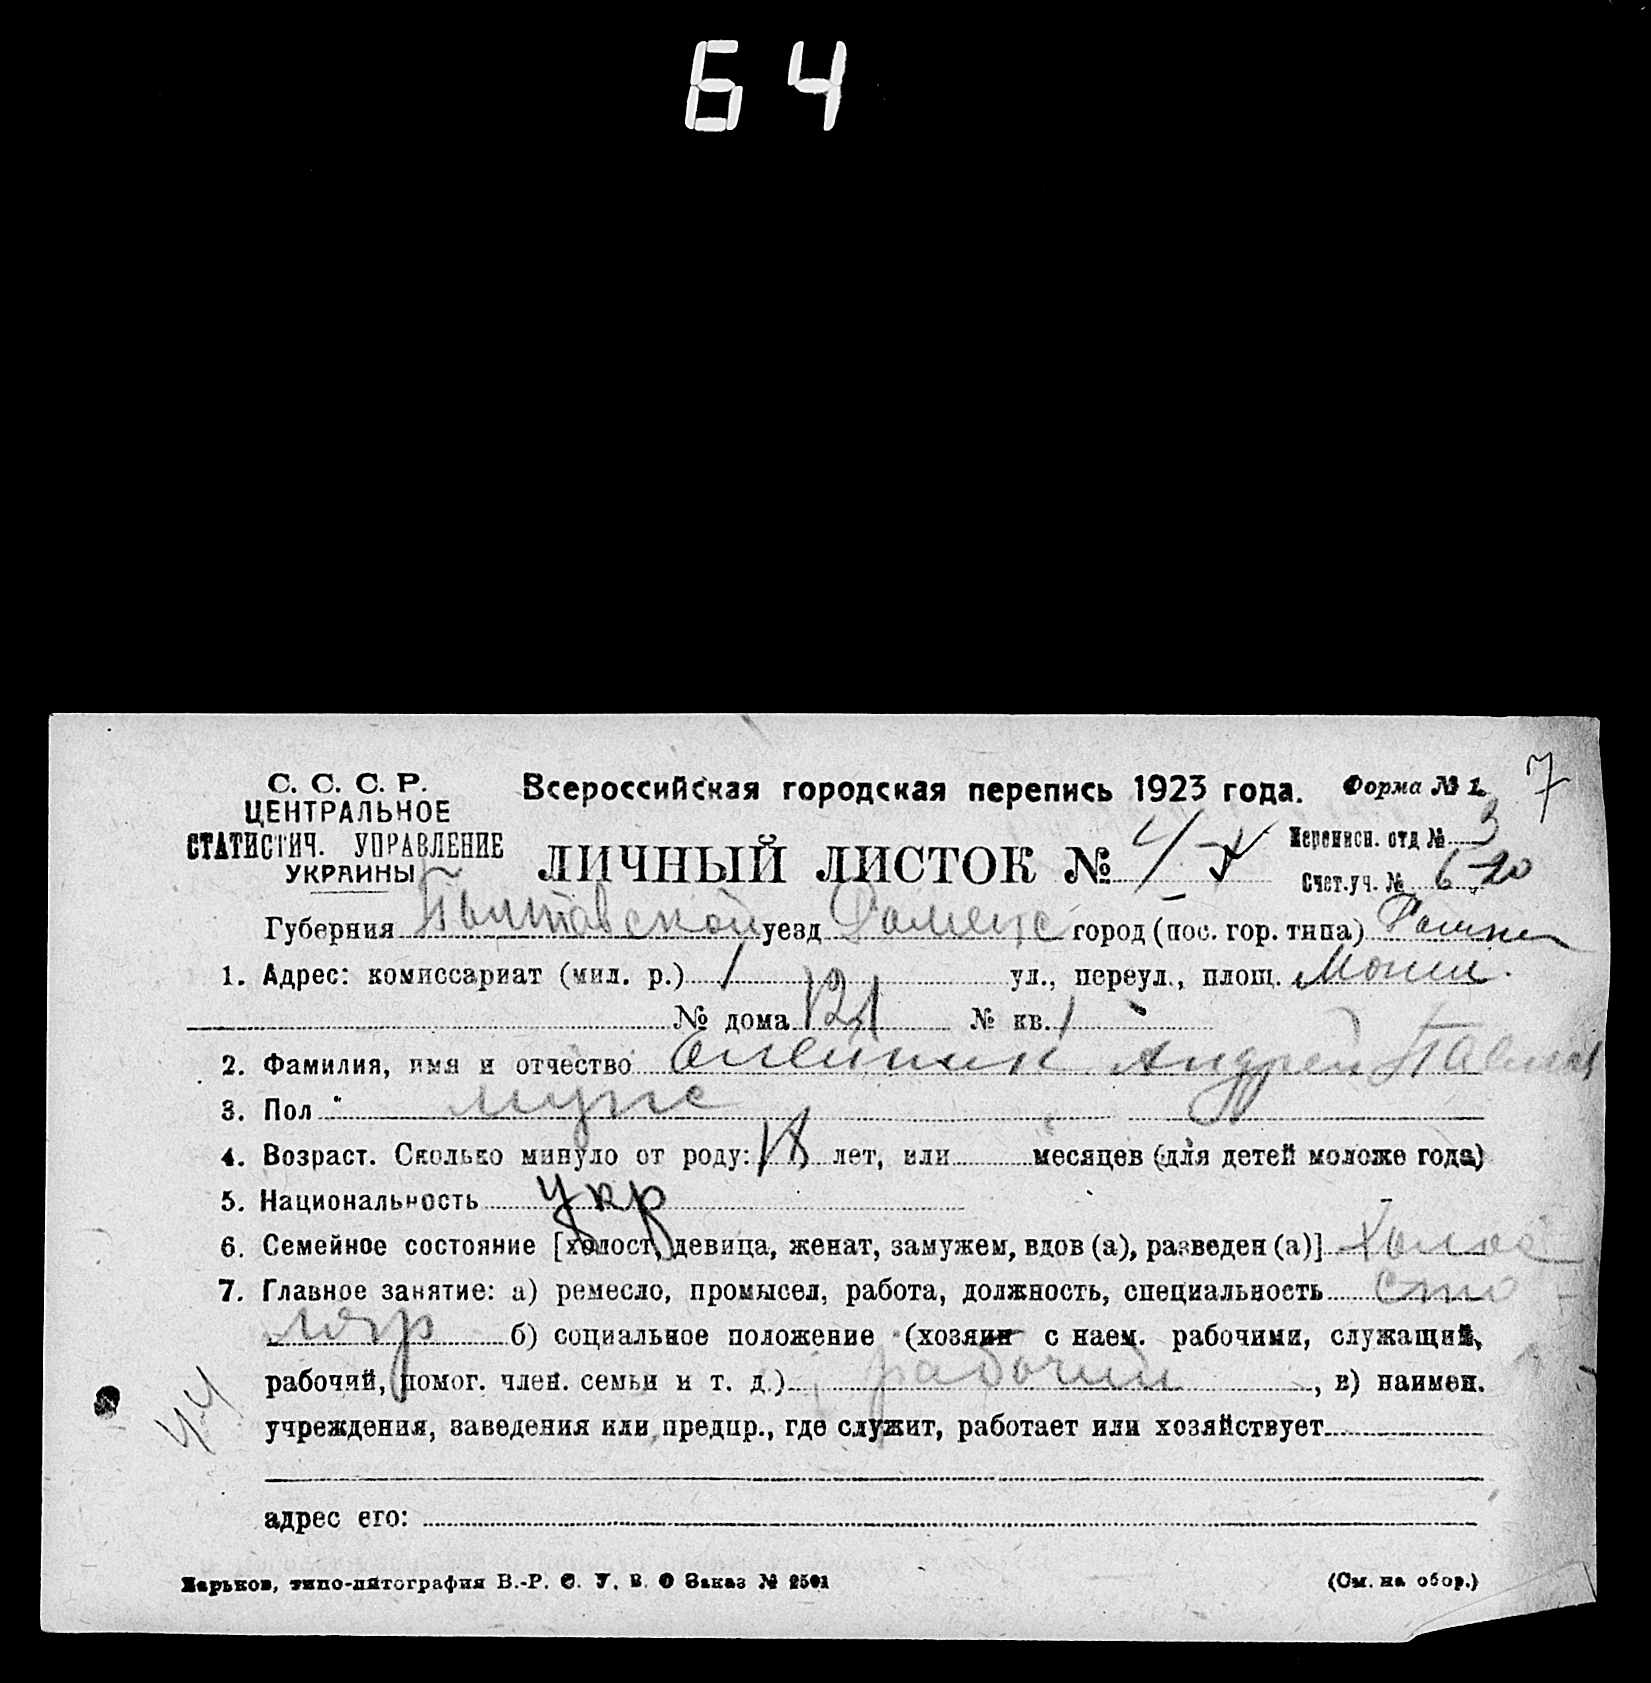 64
С. С. С. Р.
ЦЕНТРАЛЬНОЕ
СТАТИСТИЧ. УПРАВЛЕНИЕ
УКРАИНЫ
Всероссийская городская перепись 1923 года. Форма № 1. 7
ЛИЧНЫЙ ЛИСТОК № 4
Переписн. отд № 3
Счет.уч. № 6-20
Губерния Полтавской уезд Роменс город (пос. гор. типа) Ромны
1. Адрес: комиссариат (мил. р.) 1 ул., переул., площ.
№ дома 121 № кв. 1
2. Фамилия, имя и отчество Олейник Андрей Павлов
3. Пол мужс
4. Возраст. Сколько минуло от роду: 18 лет, или месяцев (для детей моложе года)
5. Национальность укр
6. Семейное состояние [холост, девица, женат, замужем, вдов (а), разведен (а)] Холос
7. Главное занятие: а) ремесло, промысел, работа, должность, специальность сто
ляр б) социальное положение (хозяин с наем. рабочими, служащий,
рабочий, помог. член. семьи и т. д.) рабочий, в) наимен.
44
учреждения, заведения или предпр., где служит, работает или хозяйствует
адрес его:
Харьков, типо-литография В.-Р. С. У. В. О Заказ № 2501 (См. на обор.)